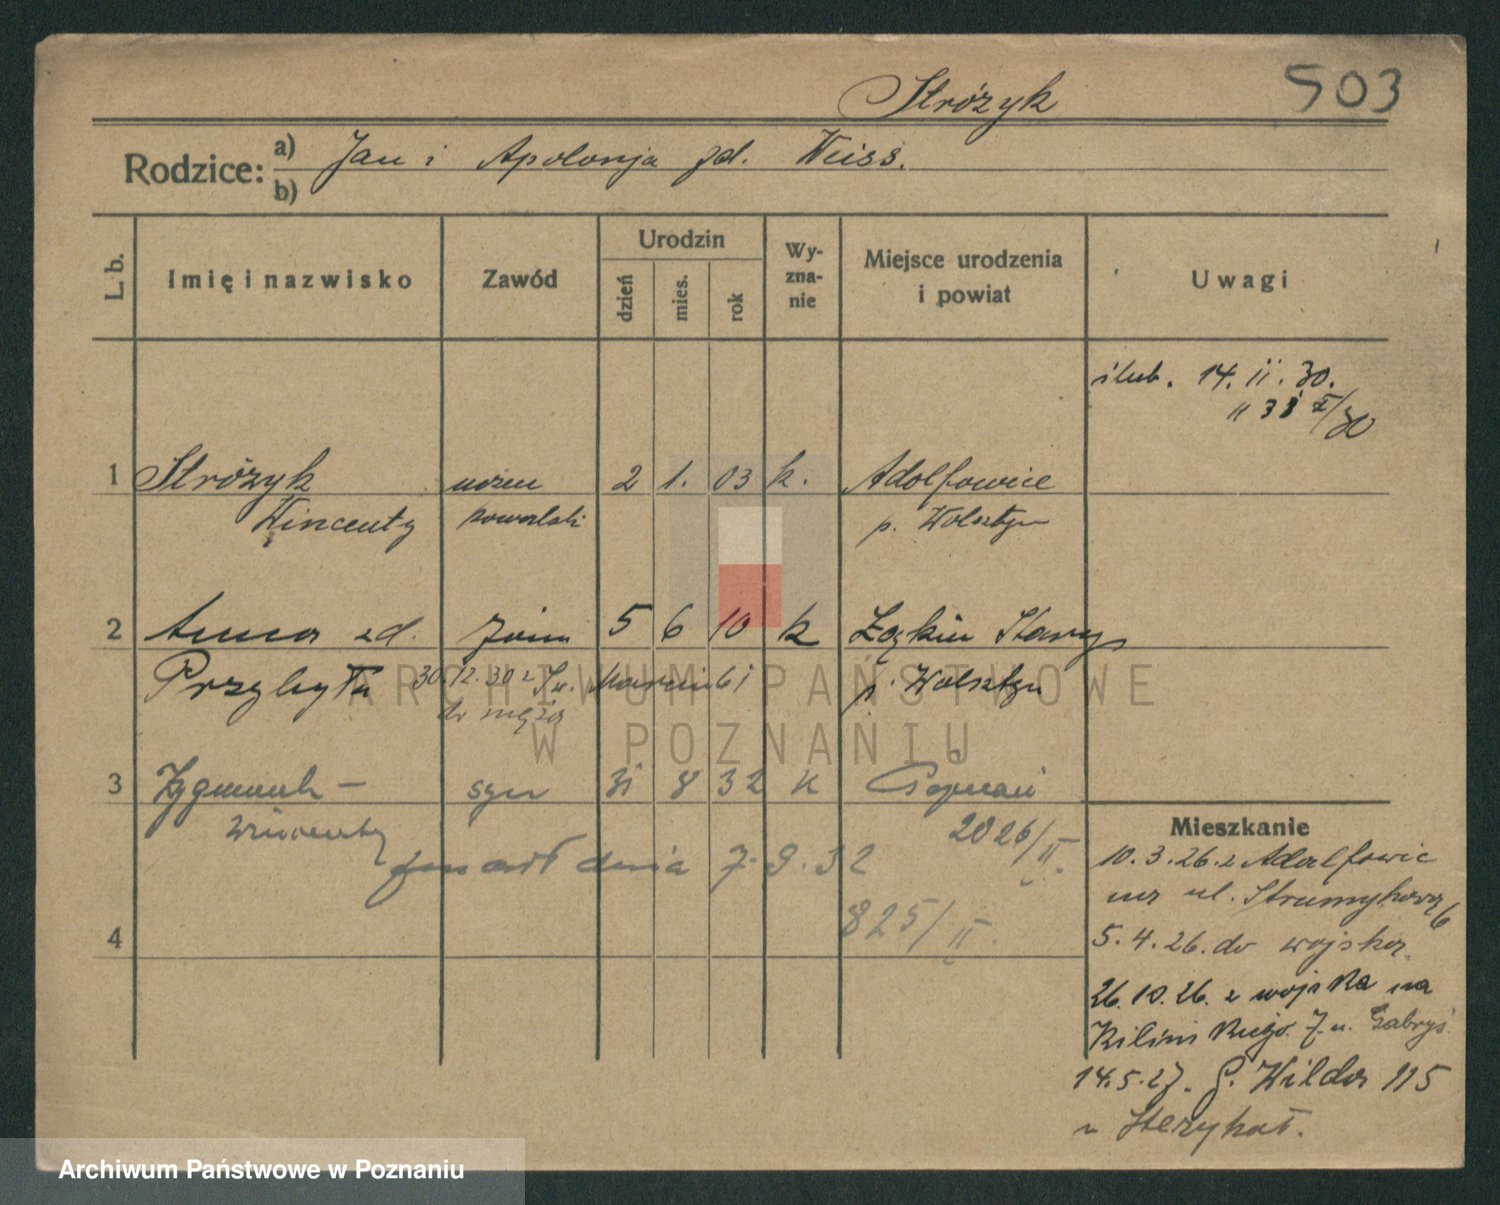 Stróżyk 503
Rodzice: a) Jan i Apolonja zd. Weiss.
b)
L. b. Imię i nazwisko Zawód Urodzin dzień mies. rok Wyznanie Miejsce urodzenia i powiat Uwagi
ślub. 14. II. 30.
1 Stróżyk uczeń 2 1. 03 k. Adolfowice
Wincenty kowalski p. Wolsztyn
2 Anna zd. żona 5 6 10 k Łąkie Stary
Przybyła 30.12.30 z Św. Marcin 61 p. Wolsztyn
do męża
3 Zygmunt – syn 31 8 32 k Poznań
Wincenty 2026/II.
zmarł dnia 7.9.32
825/II.
4
Mieszkanie
10.3.26. z Adolfowic
na ul. Strumykową 6
5.4.26. do wojska
26.10.26. z wojska na
Kilińskiego. 7 u. Gabryś
14.5.27. G. Wilda 115
u Sterykał.
ARCHIWUM PAŃSTWOWE
W POZNANIU
Archiwum Państwowe w Poznaniu